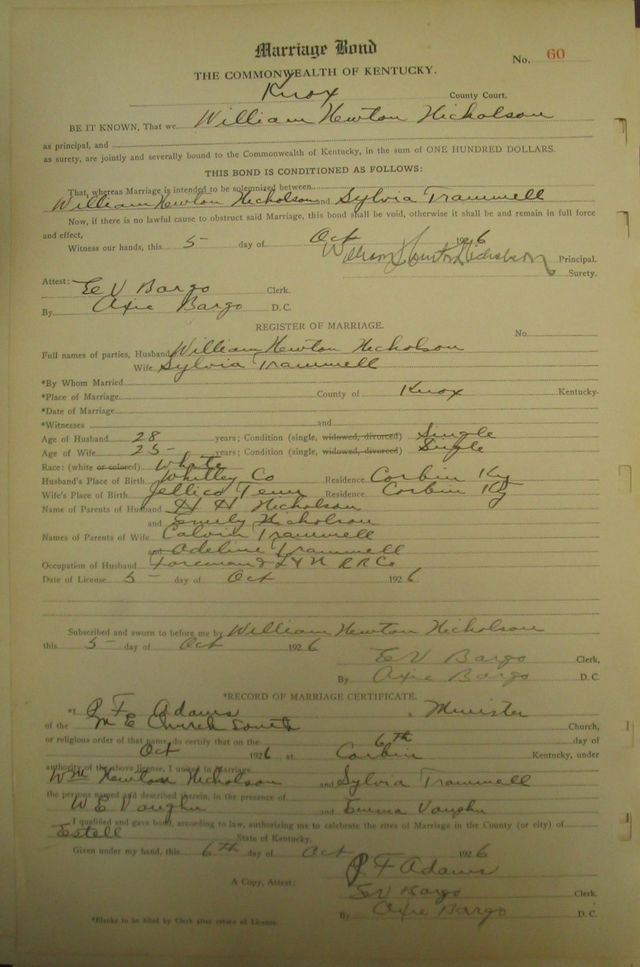 Marriage Bond
No. 60
THE COMMONWEALTH OF KENTUCKY.
Knox County Court.
BE IT KNOWN, That we William Newton Nicholson
as principal, and
as surety, are jointly and severally bound to the Commonwealth of Kentucky, in the sum of ONE HUNDRED DOLLARS.
THIS BOND IS CONDITIONED AS FOLLOWS:
That, whereas Marriage is intended to be solemnized between
William Newton Nicholson and Sylvia Trammell
Now, if there is no lawful cause to obstruct said Marriage, this bond shall be void, otherwise it shall be and remain in full force
and effect,
Witness our hands, this 5 day of Oct 1926
William Newton Nicholson Principal.
Surety.
Attest: E V Bargo Clerk.
By Oxie Bargo D. C.
REGISTER OF MARRIAGE.
No.
Full names of parties, Husband William Newton Nicholson
Wife Sylvia Trammell
*By Whom Married
*Place of Marriage County of Knox Kentucky.
*Date of Marriage
*Witnesses and
Age of Husband 28 years; Condition (single, widowed, divorced) Single
Age of Wife 25 years; Condition (single, widowed, divorced) Single
Race: (white or colored) White
Husband's Place of Birth Whitley Co Residence Corbin Ky
Wife's Place of Birth Jellico Tenn Residence Corbin Ky
Name of Parents of Husband H H Nicholson
and Emily Nicholson
Names of Parents of Wife Calvin Trammell
and Adeline Trammell
Occupation of Husband Foreman L & N R R Co
Date of License 5 day of Oct 1926
Subscribed and sworn to before me by William Newton Nicholson
this 5 day of Oct 1926
E V Bargo Clerk,
By Oxie Bargo D. C.
*RECORD OF MARRIAGE CERTIFICATE.
*I, P F Adams, Minister
of the M E Church South Church,
or religious order of that name, do certify that on the 6th day of
Oct 1926, at Corbin Kentucky, under
authority of the above license, I united in Marriage
Wm Newton Nicholson and Sylvia Trammell
the persons named and described therein, in the presence of
W E Vaughn and Emma Vaughn
I qualified and gave bond, according to law, authorizing me to celebrate the rites of Marriage in the County (or city) of
Estell State of Kentucky.
Given under my hand, this 6th day of Oct 1926
P F Adams
A Copy, Attest: E V Bargo Clerk.
By Oxie Bargo D. C.
*Blanks to be filled by Clerk after return of License.